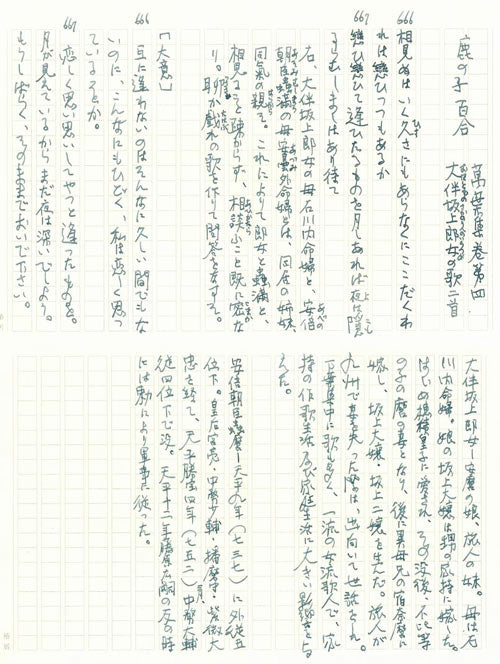 鹿の子百合
萬葉集 巻第四
大伴坂上郎女の歌二首
666 相見ぬはいく久さにもあらなくにここだくわ
れは戀ひつつもあるか
667 戀ひ戀ひて逢ひたるものを月しあれば夜は隠
るらむしましはあり待て
右、大伴坂上郎女の母石川内命婦と、安倍
朝臣蟲満の母安曇外命婦とは、同居の姉妹、
同気の親そ。これによりて郎女と蟲満と、
相見ること疎からず、相談ふこと既に密な
り。聊か戯れの歌を作りて問答をなすそ。
「大意」
666 互に逢わないのはそんなに久しい間でもな
いのに、こんなにもひどく、私は恋しく思っ
ていることか。
667 恋しく思い思いしてやっと逢ったものを。
月が見えているからまだ夜は深いでしょう。
もうしばらく、そのままでおいで下さい。
大伴坂上郎女―安麿の娘、旅人の妹。母は石
川内命婦。娘の坂上大嬢は甥の家持に嫁した。
はじめ穂積皇子に愛され、その没後、不比等
の子の麿の妻となり、後に異母兄の宿奈麿に
嫁し、坂上大嬢・坂上二嬢を生んだ。旅人が
九州で妻を失った際は、出向いて世話をした。
萬葉集中に歌も多く、一流の女流歌人で、家
持の作歌生活及び家庭生活に大きい影響を与
えた。
安倍朝臣蟲麿―天平九年(七三七)に外従五
位下。皇后宮亮・中務少輔・播磨守・紫微大
忠を経て、天平勝宝四年(七五二)三月、中務大輔
従四位下で没。天平十二年藤原広嗣の反の時
には勅により軍事に従った。